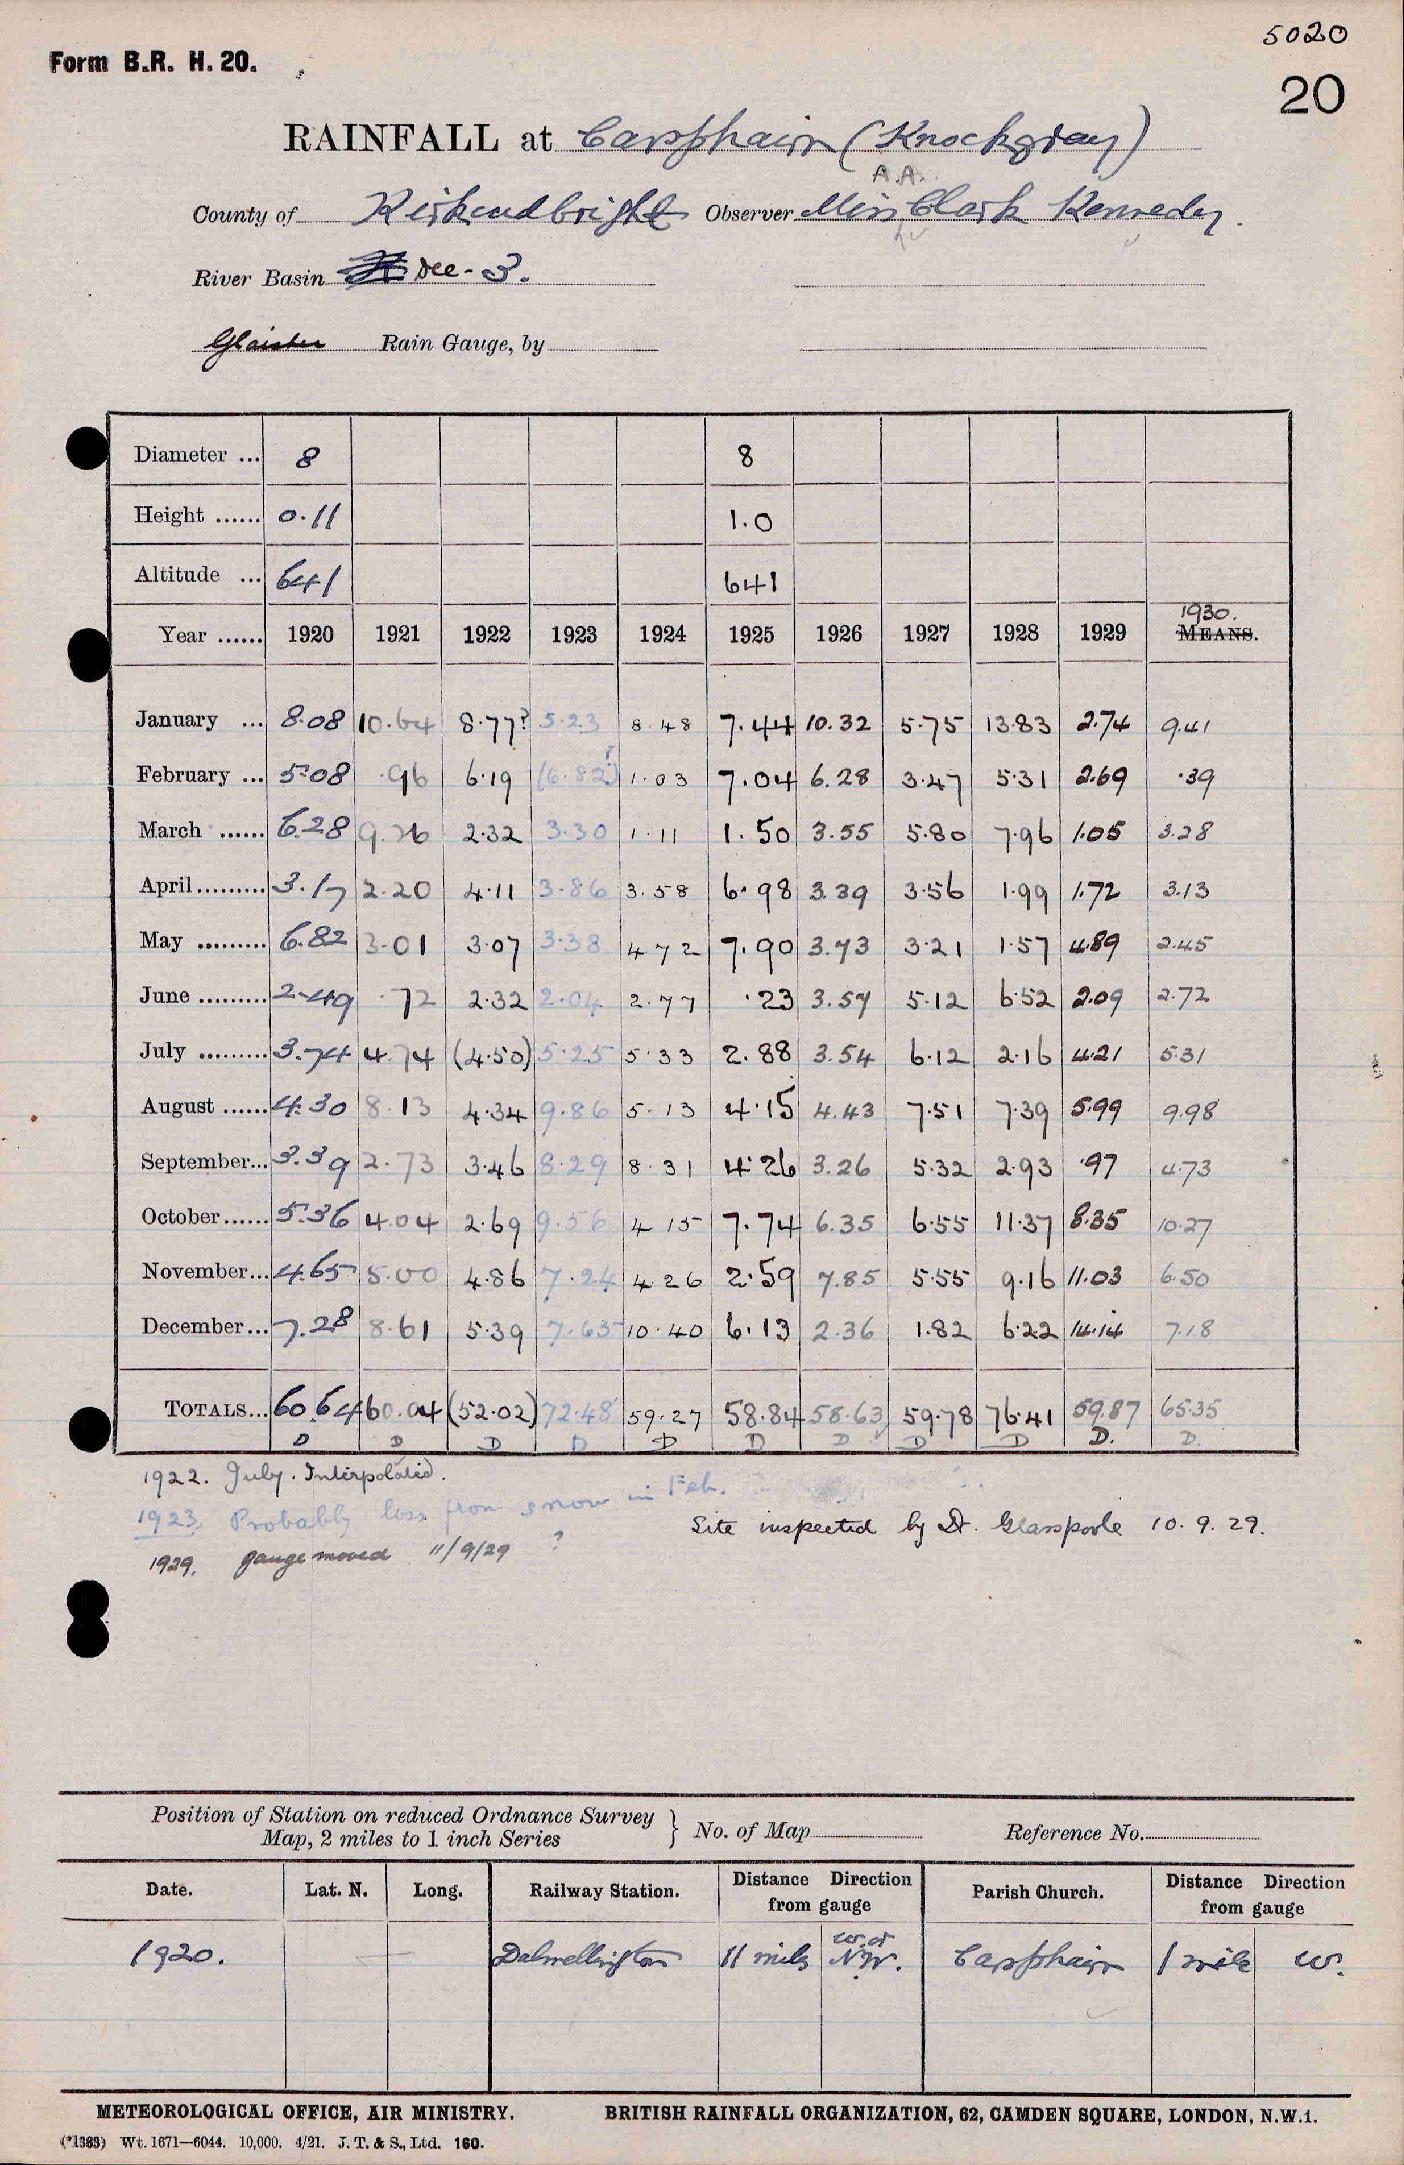 5020
Form B.R. H. 20.
20
RAINFALL at Carsphairn (Knockgray)
A.A.
County of Kirkcudbright Observer Miss Clark Kennedy.
River Basin Dee - 3.
Glaisher Rain Gauge, by
Diameter ... 8 8
Height ...... 0.11 1.0
Altitude ... 641 641
1930.
Year ...... 1920 1921 1922 1923 1924 1925 1926 1927 1928 1929 MEANS.
January ... 8.08 10.64 8.77? 5.23 8.48 7.44 10.32 5.75 13.83 2.74 9.41
February ... 5.08 .96 6.19 (6.82) 1.03 7.04 6.28 3.47 5.31 2.69 .39
March ...... 6.28 9.26 2.32 3.30 1.11 1.50 3.55 5.80 7.96 1.05 3.28
April ......... 3.17 2.20 4.11 3.86 3.58 6.98 3.39 3.56 1.99 1.72 3.13
May ......... 6.82 3.01 3.07 3.38 4.72 7.90 3.73 3.21 1.57 4.89 2.45
June ......... 2.49 .72 2.32 2.04 2.77 .23 3.57 5.12 6.52 2.09 2.72
July ......... 3.74 4.74 (4.50) 5.25 5.33 2.88 3.54 6.12 2.16 4.21 5.31
August ...... 4.30 8.13 4.34 9.86 5.13 4.15 4.43 7.51 7.39 5.99 9.98
September... 3.39 2.73 3.46 8.29 8.31 4.26 3.26 5.32 2.93 .97 4.73
October...... 5.36 4.04 2.69 9.56 4.15 7.74 6.35 6.55 11.37 8.35 10.27
November... 4.65 5.00 4.86 7.24 4.26 2.59 7.85 5.55 9.16 11.03 6.50
December... 7.28 8.61 5.39 7.65 10.40 6.13 2.36 1.82 6.22 14.14 7.18
TOTALS... 60.64 60.04 (52.02) 72.48 59.27 58.84 58.63 59.78 76.41 59.87 65.35
D D D D D D D D D D. D.
1922. July. Interpolated.
1923. Probably loss from snow in Feb.
Site inspected by Dr. Glasspoole 10.9.29.
1929. gauge moved 11/9/29 ?
Position of Station on reduced Ordnance Survey
Map, 2 miles to 1 inch Series } No. of Map Reference No.
Date. Lat. N. Long. Railway Station. Distance Direction from gauge Parish Church. Distance Direction from gauge
1920. — Dalmellington 11 miles W. of N.W. Carsphairn 1 mile W.
METEOROLOGICAL OFFICE, AIR MINISTRY. BRITISH RAINFALL ORGANIZATION, 62, CAMDEN SQUARE, LONDON, N.W.1.
(*1383) Wt. 1671—6044. 10,000. 4/21. J. T. & S., Ltd. 160.